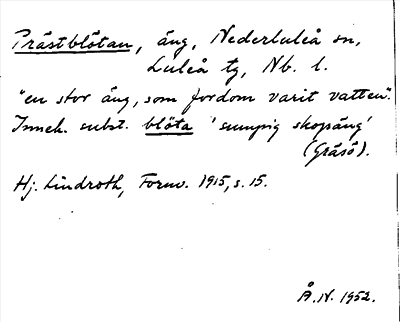 Prästblötan, äng, Nederluleå sn,
Luleå tg, Nb. l.
"en stor äng, som fordom varit vatten".
Inneh. subst. blöta 'sumpig skogsäng'
(Gräsö).
Hj. Lindroth, Fornv. 1915, s. 15.
Å. N. 1952.